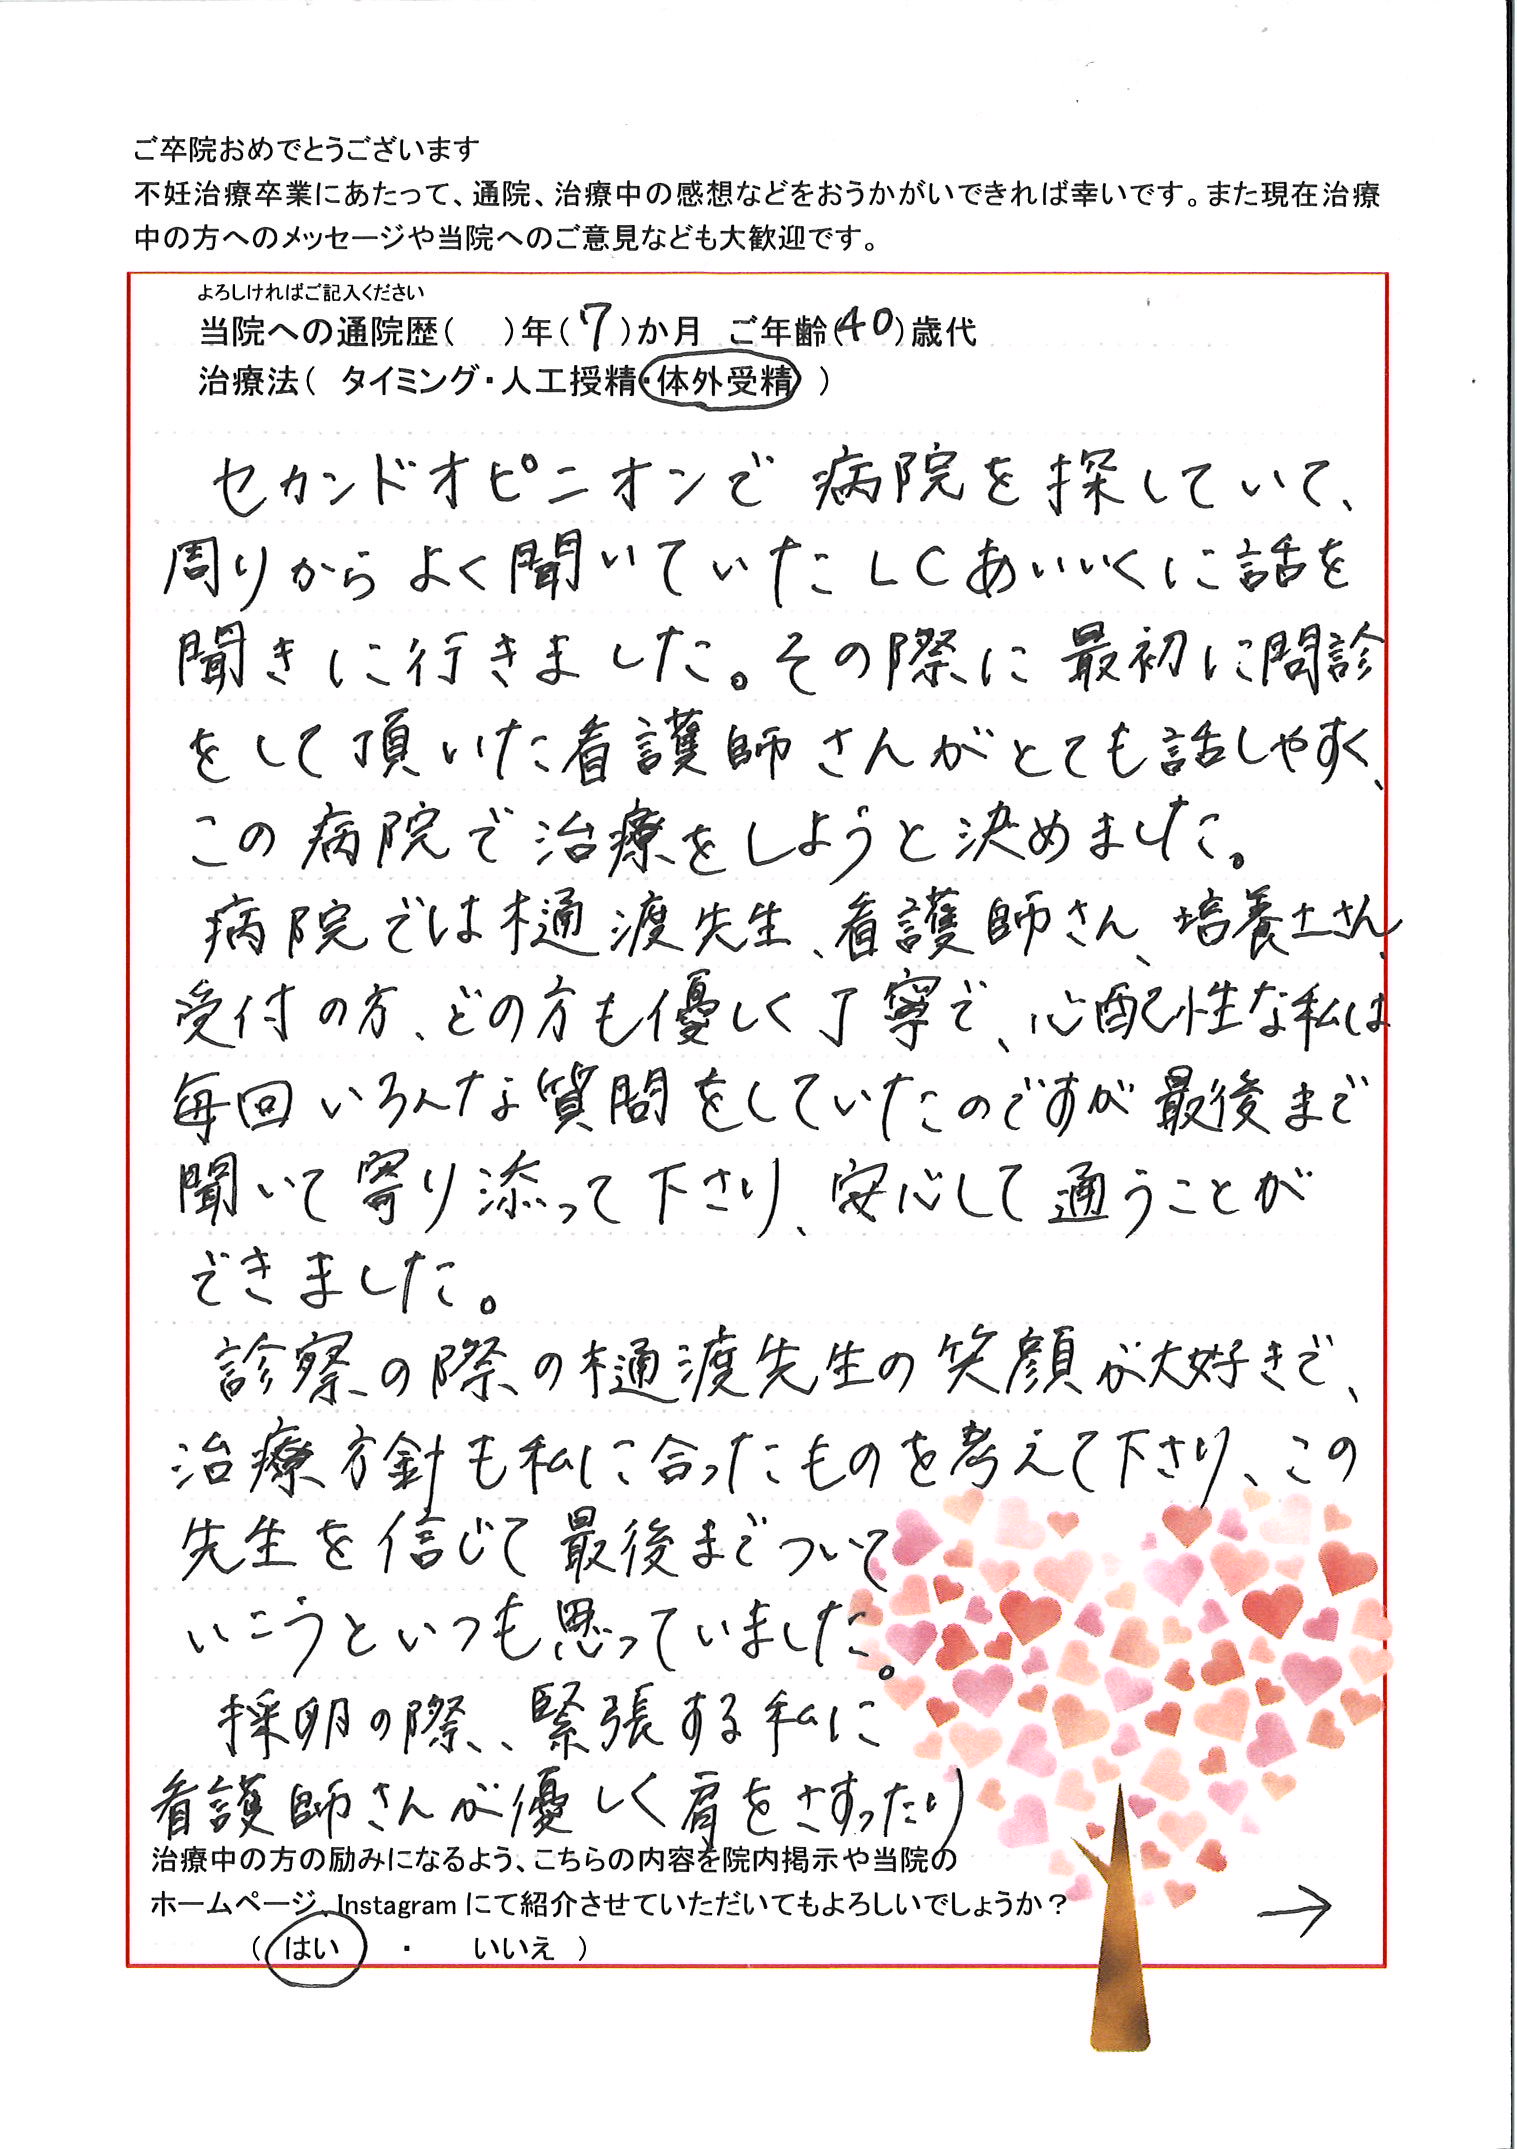 ご卒院おめでとうございます
不妊治療卒業にあたって、通院、治療中の感想などをおうかがいできれば幸いです。また現在治療
中の方へのメッセージや当院へのご意見なども大歓迎です。
よろしければご記入ください
当院への通院歴(　)年(7)か月　ご年齢(40)歳代
治療法(　タイミング・人工授精・体外受精　)
セカンドオピニオンで病院を探していて、
周りからよく聞いていたLCあいいくに話を
聞きに行きました。その際に最初に問診
をして頂いた看護師さんがとても話しやすく、
この病院で治療をしようと決めました。
病院では樋渡先生、看護師さん、培養士さん、
受付の方、どの方も優しく丁寧で、心配性な私は
毎回いろんな質問をしていたのですが最後まで
聞いて寄り添って下さり、安心して通うことが
できました。
診察の際の樋渡先生の笑顔が大好きで、
治療方針も私に合ったものを考えて下さり、この
先生を信じて最後までついて
いこうといつも思っていました。
採卵の際、緊張する私に
看護師さんが優しく肩をさすったり
治療中の方の励みになるよう、こちらの内容を院内掲示や当院の
ホームページ、Instagramにて紹介させていただいてもよろしいでしょうか？
→
(　はい　・　いいえ　)